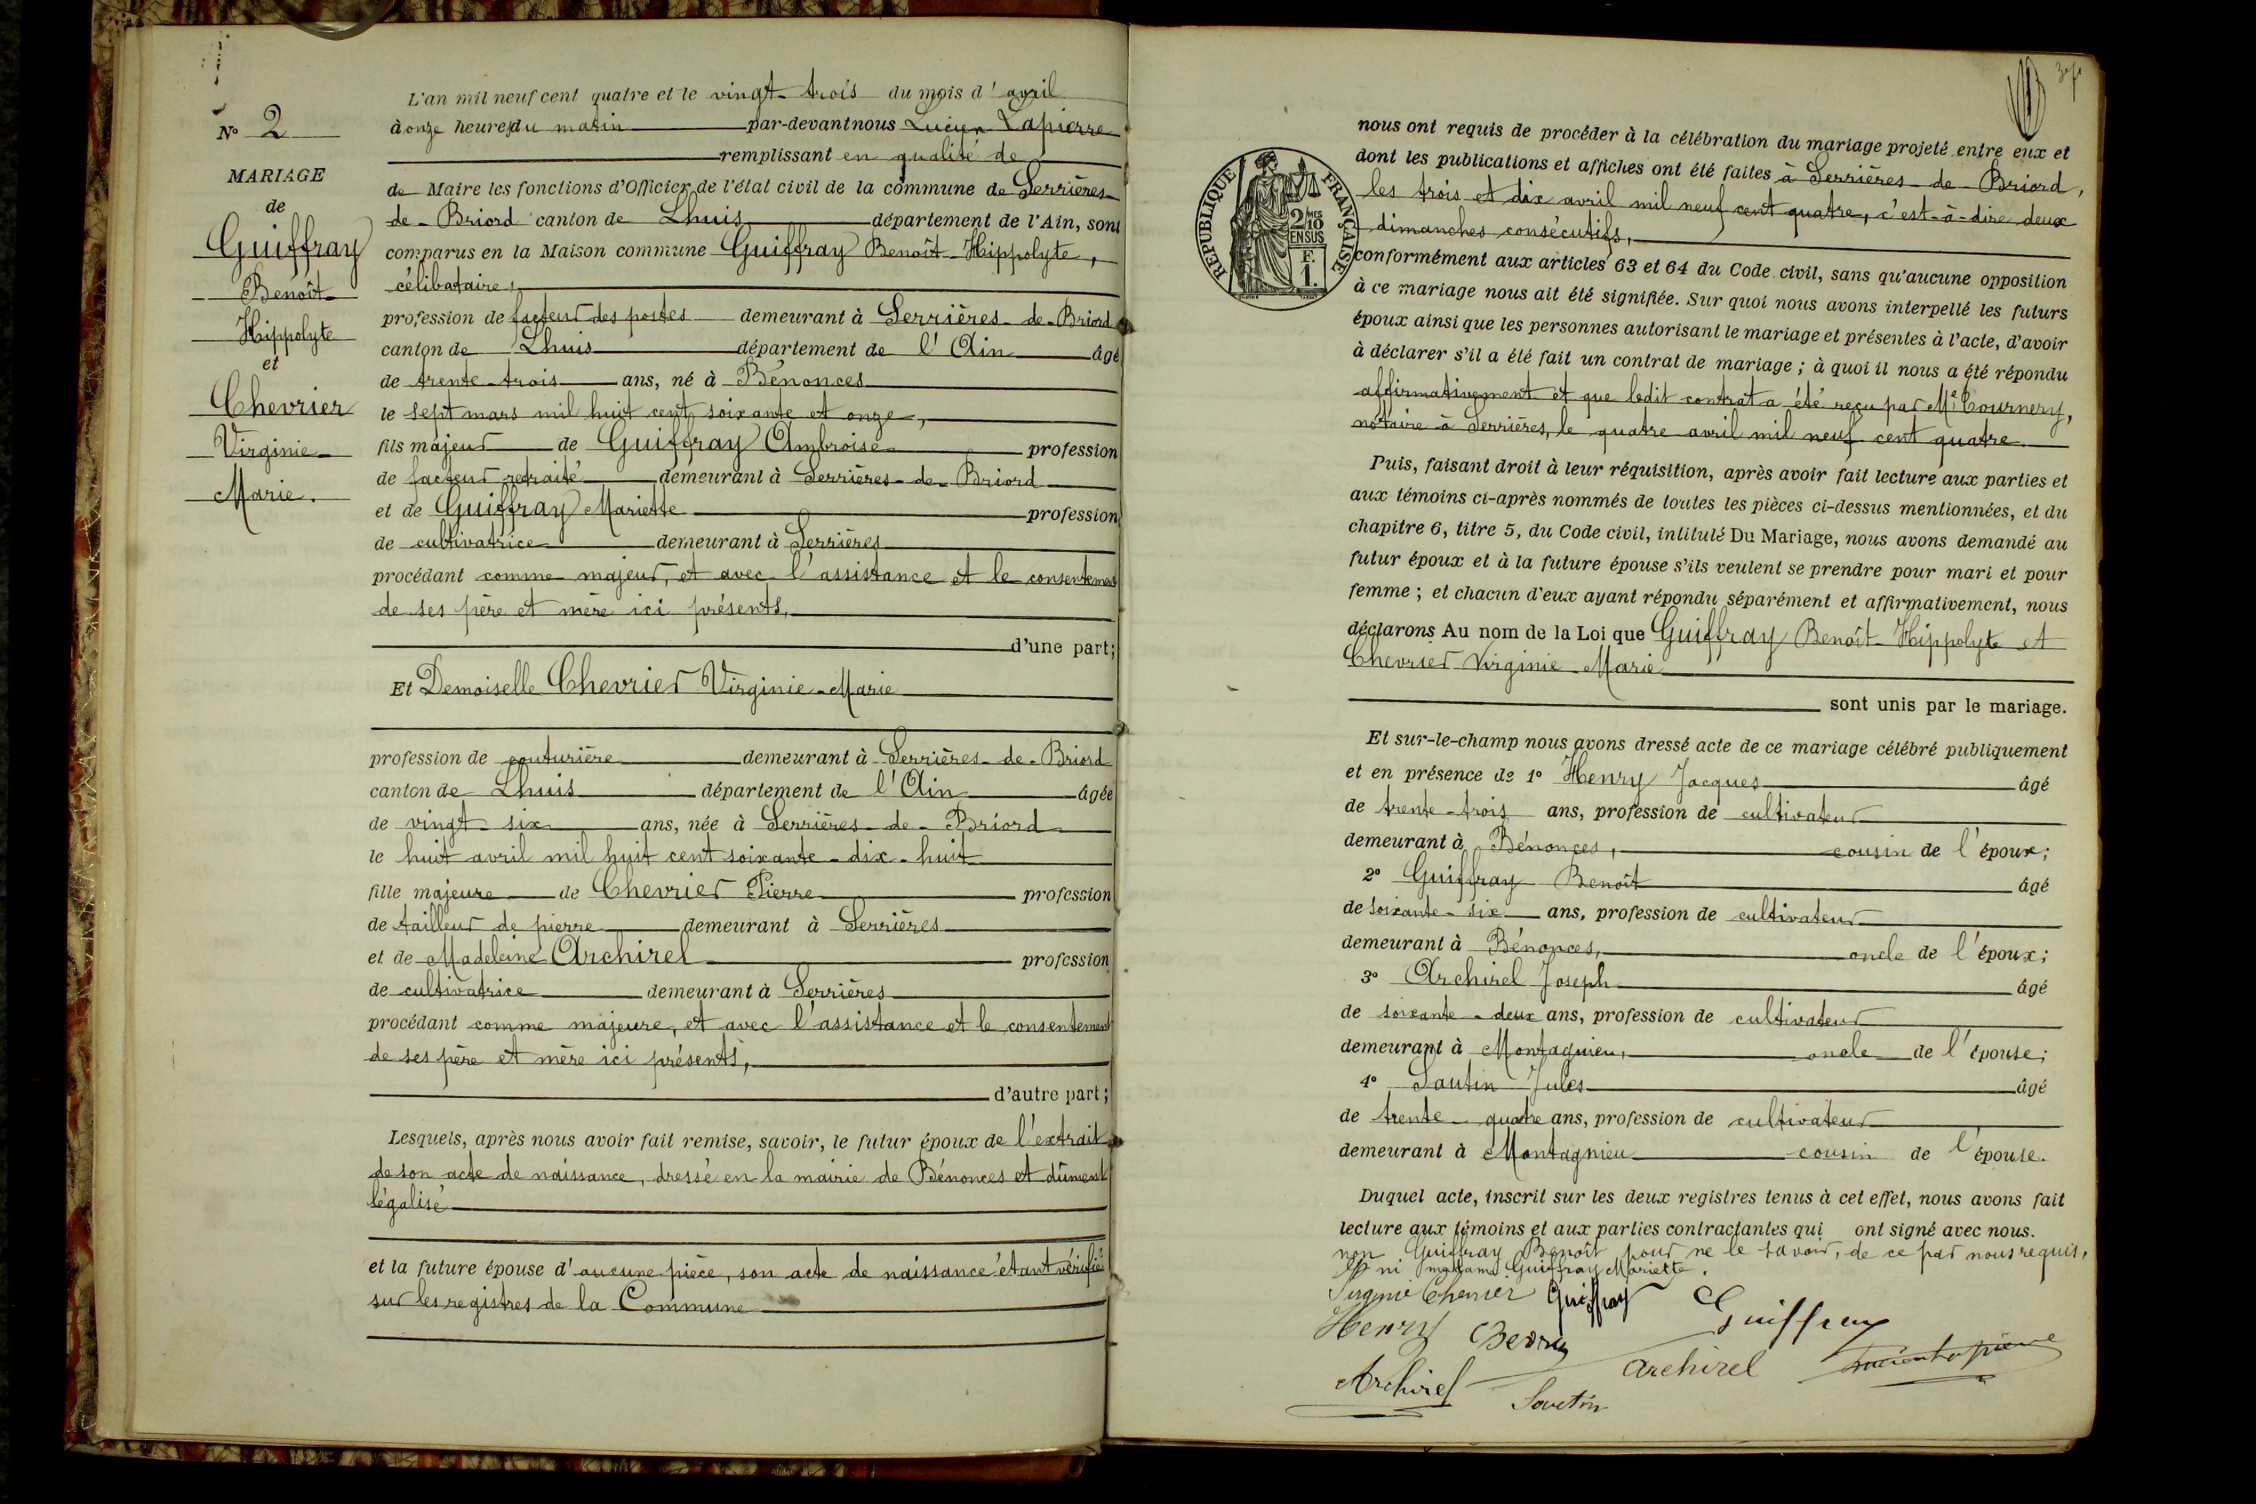 N° 2
MARIAGE
de
Guiffray
Benoît
Hippolyte
et
Chevrier
Virginie
Marie.
L'an mil neuf cent quatre et le vingt-trois du mois d'avril
à onze heures du matin par-devant nous Lucien Lapierre
remplissant en qualité de
de Maire les fonctions d'Officier de l'état civil de la commune de Serrières-
de-Briord canton de Lhuis département de l'Ain, sont
comparus en la Maison commune Guiffray Benoît-Hippolyte,
célibataire,
profession de facteur des postes demeurant à Serrières-de-Briord
canton de Lhuis département de l'Ain âgé
de trente-trois ans, né à Bénonces
le sept mars mil huit cent soixante et onze,
fils majeur de Guiffray Ambroise profession
de facteur retraité demeurant à Serrières-de-Briord
et de Guiffray Mariette profession
de cultivatrice demeurant à Serrières
procédant comme majeur, et avec l'assistance et le consentement
de ses père et mère ici présents,
d'une part;
Et Demoiselle Chevrier Virginie-Marie
profession de couturière demeurant à Serrières-de-Briord
canton de Lhuis département de l'Ain âgée
de vingt-six ans, née à Serrières-de-Briord
le huit avril mil huit cent soixante-dix-huit
fille majeure de Chevrier Pierre profession
de tailleur de pierre demeurant à Serrières
et de Madeleine Archirel profession
de cultivatrice demeurant à Serrières
procédant comme majeure, et avec l'assistance et le consentement
de ses père et mère ici présents,
d'autre part;
Lesquels, après nous avoir fait remise, savoir, le futur époux de l'extrait
de son acte de naissance, dressé en la mairie de Bénonces et dûment
légalisé
et la future épouse d'aucune pièce, son acte de naissance étant vérifié
sur les registres de la Commune
RÉPUBLIQUE FRANÇAISE
2/10 MES
EN SUS
F.
1.
nous ont requis de procéder à la célébration du mariage projeté entre eux et
dont les publications et affiches ont été faites à Serrières-de-Briord,
les trois et dix avril mil neuf cent quatre, c'est-à-dire deux
dimanches consécutifs,
conformément aux articles 63 et 64 du Code civil, sans qu'aucune opposition
à ce mariage nous ait été signifiée. Sur quoi nous avons interpellé les futurs
époux ainsi que les personnes autorisant le mariage et présentes à l'acte, d'avoir
à déclarer s'il a été fait un contrat de mariage; à quoi il nous a été répondu
affirmativement et que ledit contrat a été reçu par Me Cournery,
notaire à Serrières, le quatre avril mil neuf cent quatre.
Puis, faisant droit à leur réquisition, après avoir fait lecture aux parties et
aux témoins ci-après nommés de toutes les pièces ci-dessus mentionnées, et du
chapitre 6, titre 5, du Code civil, intitulé Du Mariage, nous avons demandé au
futur époux et à la future épouse s'ils veulent se prendre pour mari et pour
femme; et chacun d'eux ayant répondu séparément et affirmativement, nous
déclarons Au nom de la Loi que Guiffray Benoît-Hippolyte et
Chevrier Virginie-Marie
sont unis par le mariage.
Et sur-le-champ nous avons dressé acte de ce mariage célébré publiquement
et en présence de 1° Henry Jacques âgé
de trente-trois ans, profession de cultivateur
demeurant à Bénonces, cousin de l'époux;
2° Guiffray Benoît âgé
de soixante-six ans, profession de cultivateur
demeurant à Bénonces, oncle de l'époux;
3° Archirel Joseph âgé
de soixante-deux ans, profession de cultivateur
demeurant à Montagnieu, oncle de l'épouse;
4° Sautin Jules âgé
de trente-quatre ans, profession de cultivateur
demeurant à Montagnieu cousin de l'épouse.
Duquel acte, inscrit sur les deux registres tenus à cet effet, nous avons fait
lecture aux témoins et aux parties contractantes qui ont signé avec nous.
non Guiffray Benoît pour ne le savoir, de ce par nous requis,
ni madame Guiffray Mariette.
Virginie Chevrier Guiffray Guiffray
Henry
Archirel Archirel Lucien Lapierre
Soutin